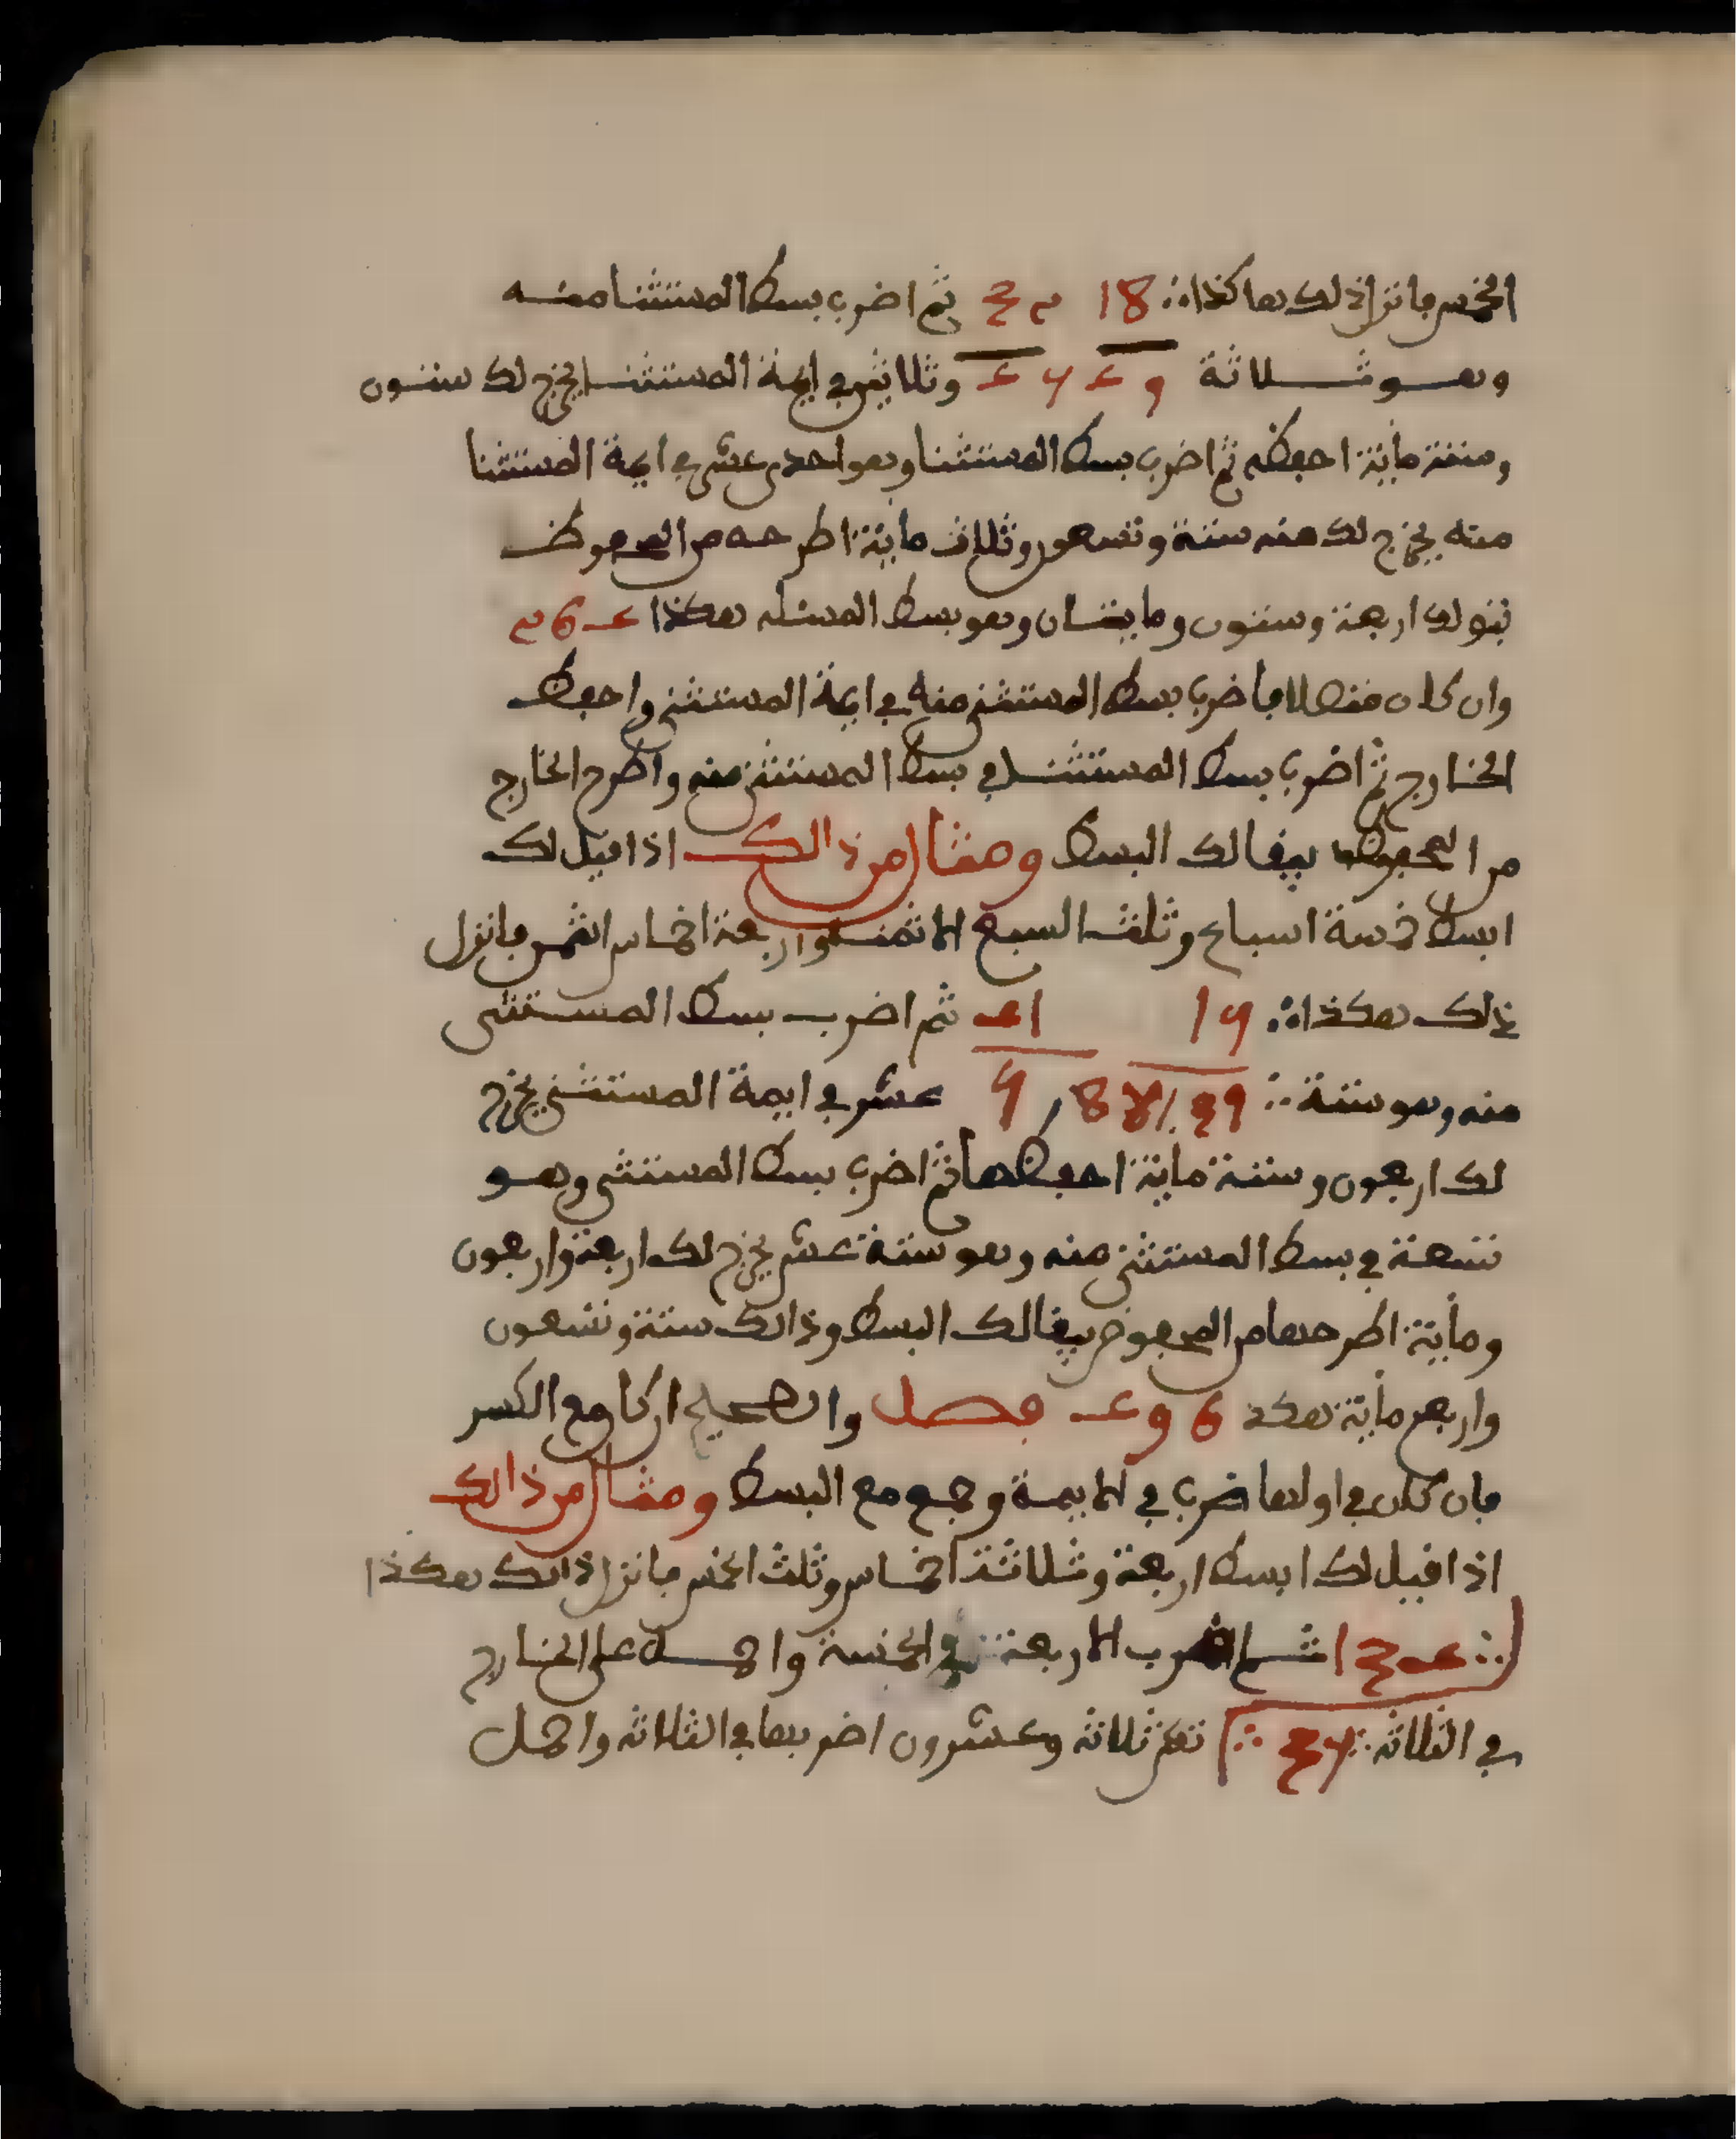 الخمس فانزل ذلك هاكذا ∴ 18 ثم اضرب بسط المستثنا منه
وهو ثلاثة وثلاثين في ايمة المستثنا يخرج لك ستون
وستة ماية احفظه ثم اضرب بسط المستثنا وهو احدى عشر في ايمة المستثنا
منه يخرج لك منه ستة وتسعون وثلاث ماية اطرحه من المحفوظ
اربعة وستون ومايتان وهو بسط المسئله هكذا
وان كان متصلا فاضرب بسط المستثنى منه في ايمة المستثنى واحفظ
الخارج ثم اضرب بسط المستثنى في بسط المستثنى منه واطرح الخارج
من المحفوظ يبقا لك البسط ومثال من ذالك اذا قيل لك
ابسط خمسة اسباع وثلث السبع الا ثمنا واربعة اخماس الثمن فانزل
ذلك هكذا ∴ ثم اضرب بسط المستثنى
منه وهو ستة ∴ عشر في ايمة المستثنى يخرج
لك اربعون وستة ماية احفظها ثم اضرب بسط المستثنى وهو
تسعة في بسط المستثنى منه وهو ستة عشر يخرج لك اربعة واربعون
وماية اطرحها من المحفوض يبقا لك البسط وذالك ستة وتسعون
واربع ماية هكذ فصل والصحيح ان كا مع الكسر
فان كان في اولها ضرب في الايمة وجمع مع البسط ومثال من ذالك
اذا قيل لك ابسط اربعة وثلاثة اخماس وثلث الخمس فانزل ذالك هكذا
ثم اضرب الاربعة في الخمسة واحمل على الخارج
في الثلاثه تكن ثلاثه وعشرون اضربها في الثلاثه واحمل